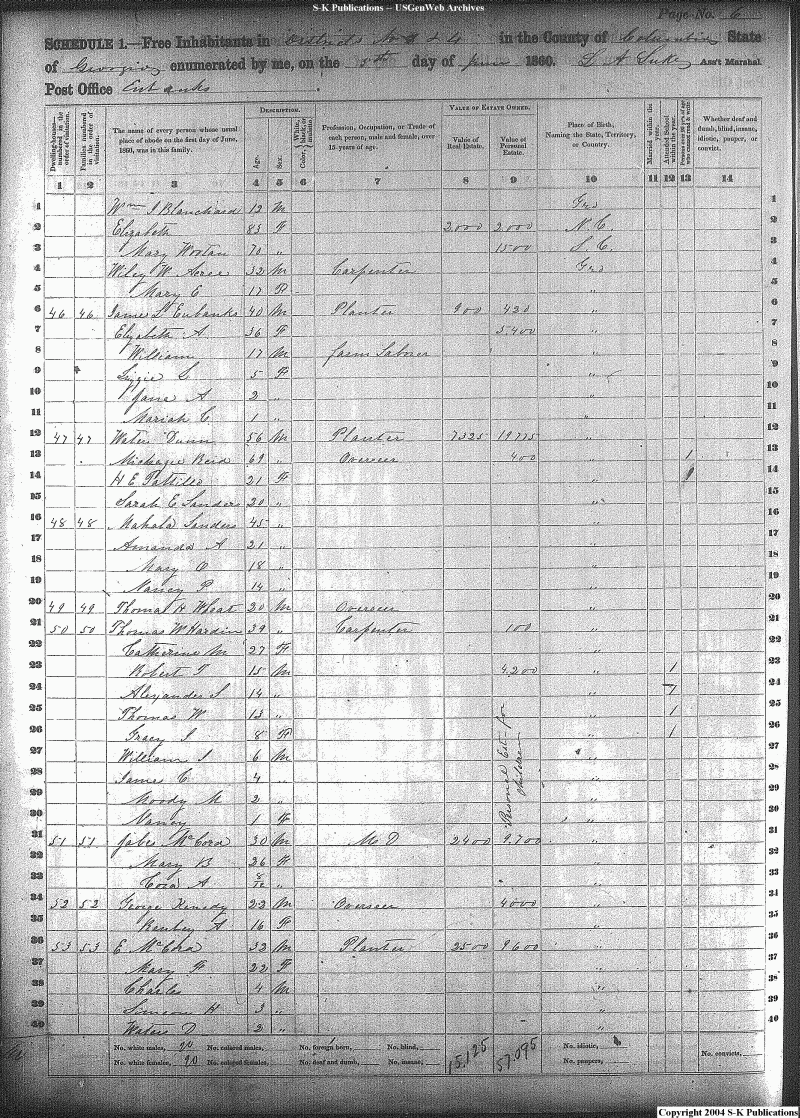 S-K Publications -- USGenWeb Archives
Page No. 6
SCHEDULE 1.—Free Inhabitants in Districts No 3 & 4 in the County of Columbia State
of Georgia enumerated by me, on the 5th day of June 1860. L A Luke Ass't Marshal.
Post Office Eubanks
Dwelling-houses—numbered in the order of visitation.
Families numbered in the order of visitation.
The name of every person whose usual place of abode on the first day of June, 1860, was in this family.
DESCRIPTION.
Age.
Sex.
Color, White, black, or mulatto.
Profession, Occupation, or Trade of each person, male and female, over 15 years of age.
VALUE OF ESTATE OWNED.
Value of Real Estate.
Value of Personal Estate.
Place of Birth, Naming the State, Territory, or Country.
Married within the year.
Attended School within the year.
Persons over 20 y'rs of age who cannot read & write.
Whether deaf and dumb, blind, insane, idiotic, pauper, or convict.
1 2 3 4 5 6 7 8 9 10 11 12 13 14
1 Wm J Blanchard 12 M Geo 1
2 Elizabeth 83 F 2,000 2,000 N.C. 2
3 Mary Wootan 70 " 1500 S.C. 3
4 Wiley W Acree 32 M Carpenter Geo 4
5 Mary E 17 F " 5
6 46 46 James L Eubanks 40 M Planter 900 420 " 6
7 Elizabeth A 36 F 5,400 " 7
8 William 17 M farm Laborer " 8
9 Lizzie L 5 F " 9
10 Jane A 2 " " 10
11 Mariah C 1 " " 11
12 47 47 Waters Dunn 56 M Planter 7325 19775 " 12
13 Reid 69 " Overseer 400 " 1 13
14 H E Pattillo 21 F " 1 14
15 Sarah E Sanders 20 " " 15
16 48 48 Mahala Sanders 45 " " 16
17 Amanda A 21 " " 17
18 Mary O 18 " " 18
19 Nancy P 14 " " 19
20 49 49 Thomas H Wheat 20 M Overseer " 20
21 50 50 Thomas W Hardin 39 " Carpenter 100 " 21
22 Catherine M 27 F " 22
23 Robert T 15 M 4,200 " 1 23
24 Alexander S 14 " " 1 24
25 Thomas W 13 " " 1 25
26 Gracy S 8 F " 1 26
27 William J 6 M " 27
28 James C 4 " " 28
29 Moody M 2 " " 29
30 Nancy 1 F " 30
Personal Est. for children
31 51 51 Jabez McCord 30 M M D 2400 9,700 " 31
32 Mary B 26 F " 32
33 Cora A 8/12 " " 33
34 52 52 George Kenedy 22 M Overseer 4000 " 34
35 A 16 F " 35
36 53 53 E McCord 32 M Planter 2500 9600 " 36
37 Mary F 22 F " 37
38 Charles 4 M " 38
39 Simeon H 3 " " 39
40 Waters D 2 " " 40
No. white males, 20 No. colored males, No. foreign born, No. blind, 15,125 57,095 No. idiotic, No. convicts,
No. white females, 20 No. colored females, No. deaf and dumb, No. insane, No. paupers,
Copyright 2004 S-K Publications